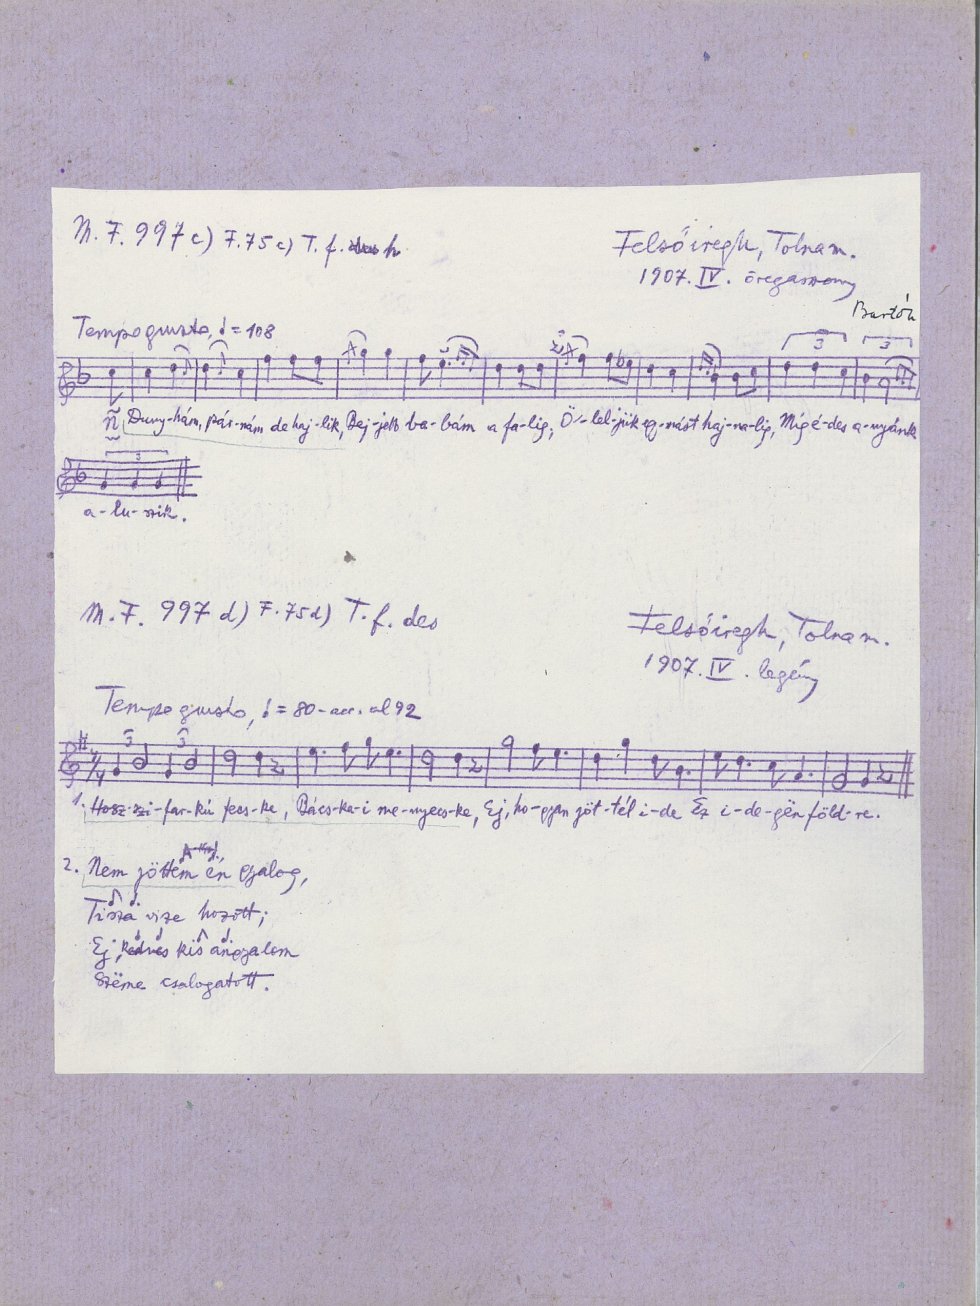 M. F. 997 c) F. 75 c) T. f. h
Felsőiregh, Tolna m.
1907. IV. öregasszony
Bartók
Tempo giusto, ♩ = 108
3 3
Duny-hám, pár-nám de haj-lik, Bej-jebb ba-bám a fa-lig, Ö-lel-jük egy-mást haj-na-lig, Míg é-des a-nyánk
3
a-lu-szik.
M. F. 997 d) F. 75 d) T. f. des
Felsőiregh, Tolna m.
1907. IV. legény
Tempo giusto, ♩ = 80 - acc. al 92
3 3
1. Hosz-szi-far-kú fecs-ke, Bács-ka-i me-nyecs-ke, Ej, ho-gyan jöt-tél i-de Ez i-de-gën föld-re.
2. Nem jöttem én gyalog,
Tisza vize hozott;
Ej, kedves kis angyalom
Szëme csalogatott.